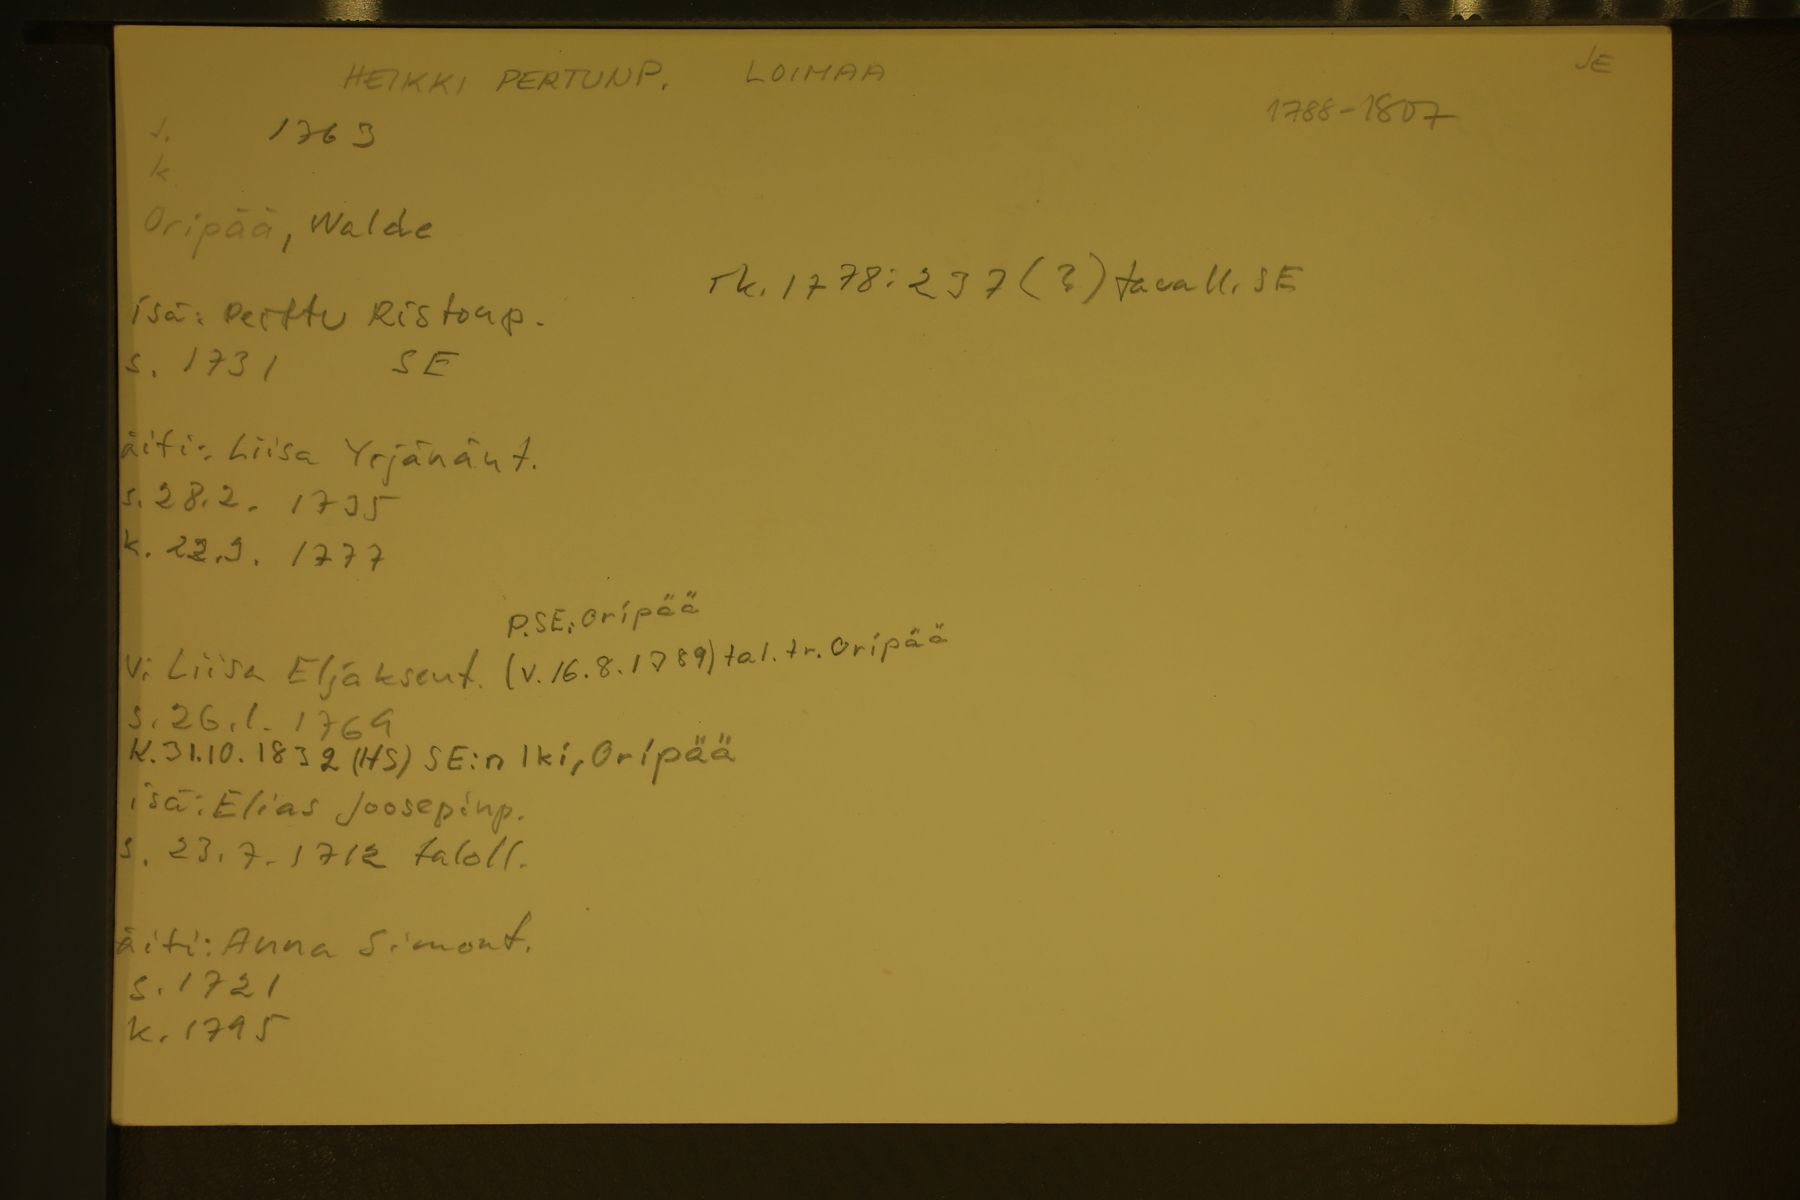 HEIKKI PERTUNP. LOIMAA
SE
1788-1807
s. 1763
k.
Oripää, Walde
rk. 1778: 237 (?) tavall. SE
isä: Perttu Ristonp.
s. 1731 SE
äiti: Liisa Yrjänänt.
s. 28.2. 1735
k. 22.9. 1777
P.SE; Oripää
V: Liisa Eljaksent. (v. 16.8.1789) tal. tr. Oripää
s. 26.1. 1769
k. 31.10. 1832 (HS) SE:n lki, Oripää
isä: Elias Joosepinp.
s. 23.7. 1712 taloll.
äiti: Anna Simont.
s. 1721
k. 1795